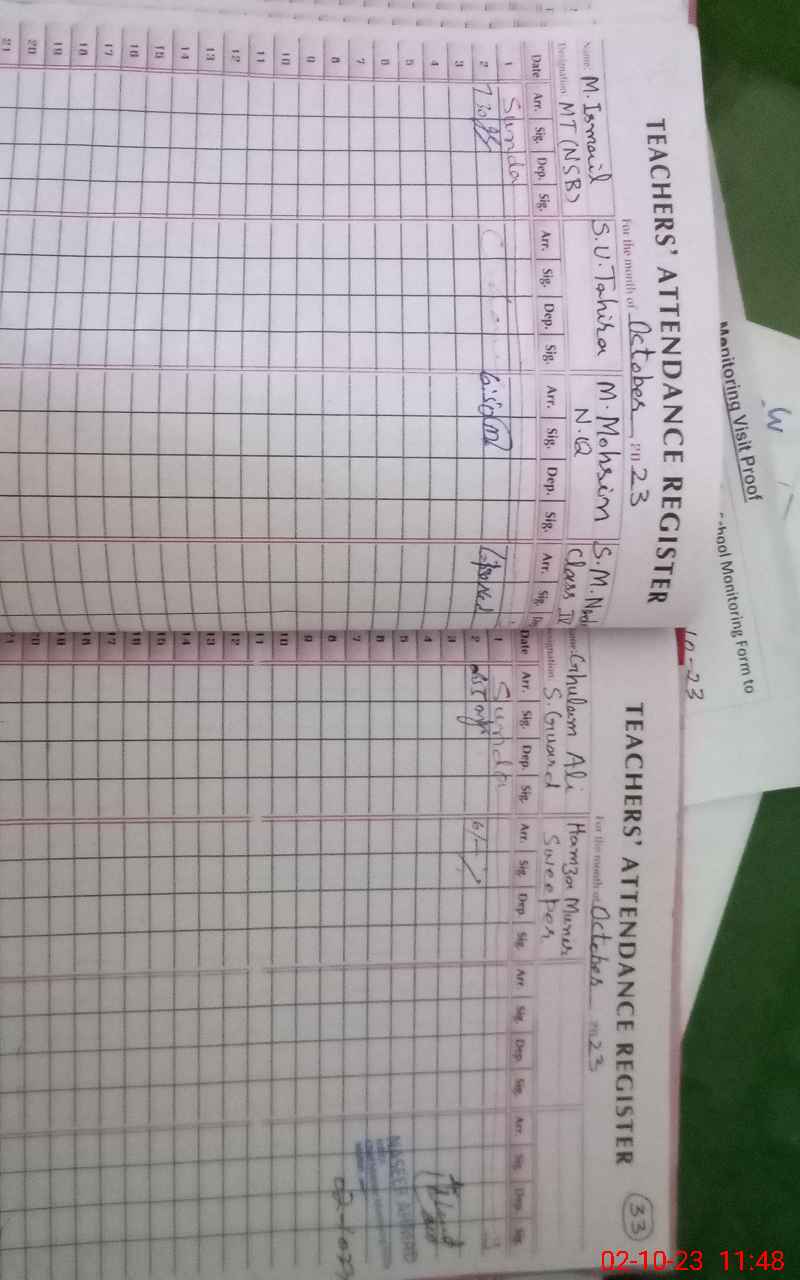 TEACHERS' ATTENDANCE REGISTER
For the month of October 2023
Name: M. Ismail S.U. Tahira M. Mohsin S.M.
Designation: MT (NSB) N.Q Class IV
Date Arr. Sig. Dep. Sig. Arr. Sig. Dep. Sig. Arr. Sig. Dep. Sig. Arr. Sig.
1 Sunda
2 7:30 6:50
3
4
5
6
7
8
9
10
11
12
13
14
15
16
17
18
19
20
21
TEACHERS' ATTENDANCE REGISTER
33
For the month of October 2023
Ghulam Ali Hamza Munir
S. Guard Sweeper
Date Arr. Sig. Dep. Sig. Arr. Sig. Dep. Sig. Arr. Sig. Dep. Sig. Arr. Sig. Dep. Sig.
1 Sunda
2
3
4
5
6
7
8
9
10
11
12
13
14
15
16
17
18
19
20
21
Monitoring Visit Proof
School Monitoring Form to
10-23
02-10-23 11:48